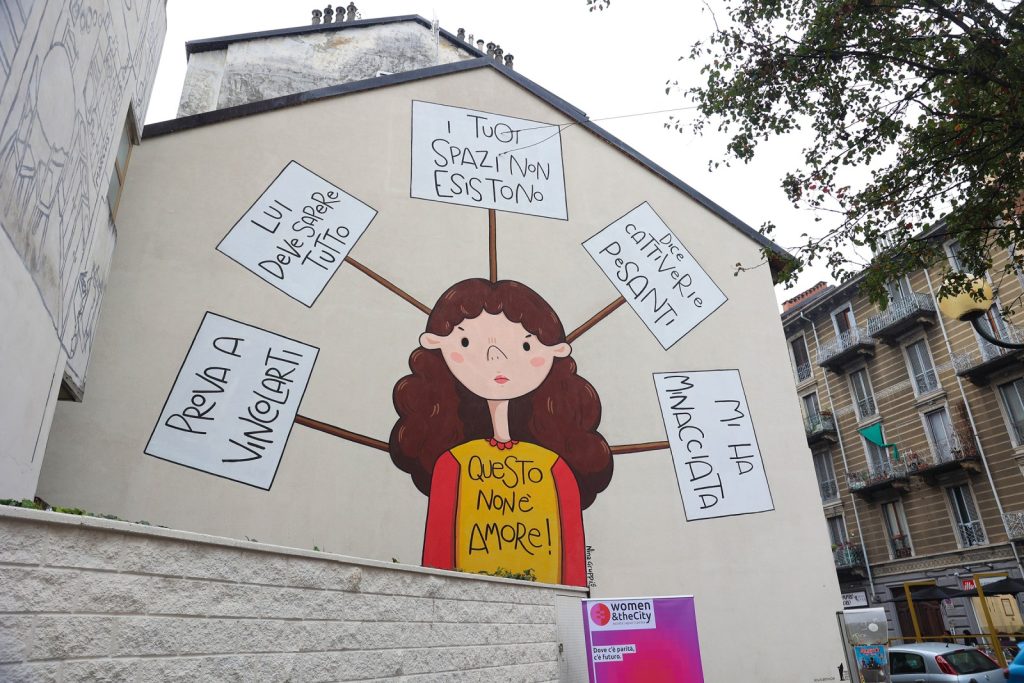 I TUOI
SPAZI NON
ESISTONO
LUI
DEVE SAPERE
TUTTO
DICE
CATTIVERIE
PESANTI
PROVA A
VINCOLARTI
MI HA
MINACCIATA
QUESTO
NON È
AMORE!
women
&theCity
Dove c'è parità,
c'è futuro.